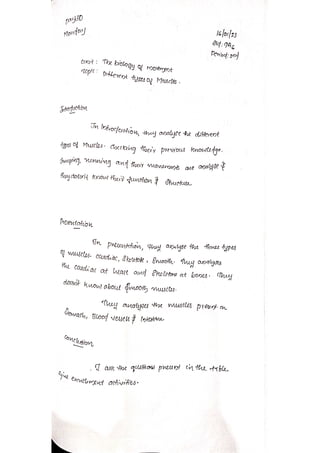 day:10
Monday
16/01/23
Std: 7th
Period: 2nd
Unit: The biology of movement
Topic: Different types of Muscles.
Introduction
In Introduction, they analyse the different
types of Muscles. Checking their previous knowledge.
Jumping, running and their movements are analyse &
they doesn't know their function & structure.
Presentation
In presentation, they analyse the three types
of muscles. cardiac, skeletal, smooth. They analyses
the cardiac at heart and skeletal at bones. They
doesn't know about smooth muscles.
They analyses the muscles present in
stomach, Blood vessels & Intestine.
Conclusion
I ask the questions present in the table.
give enrichment activities.